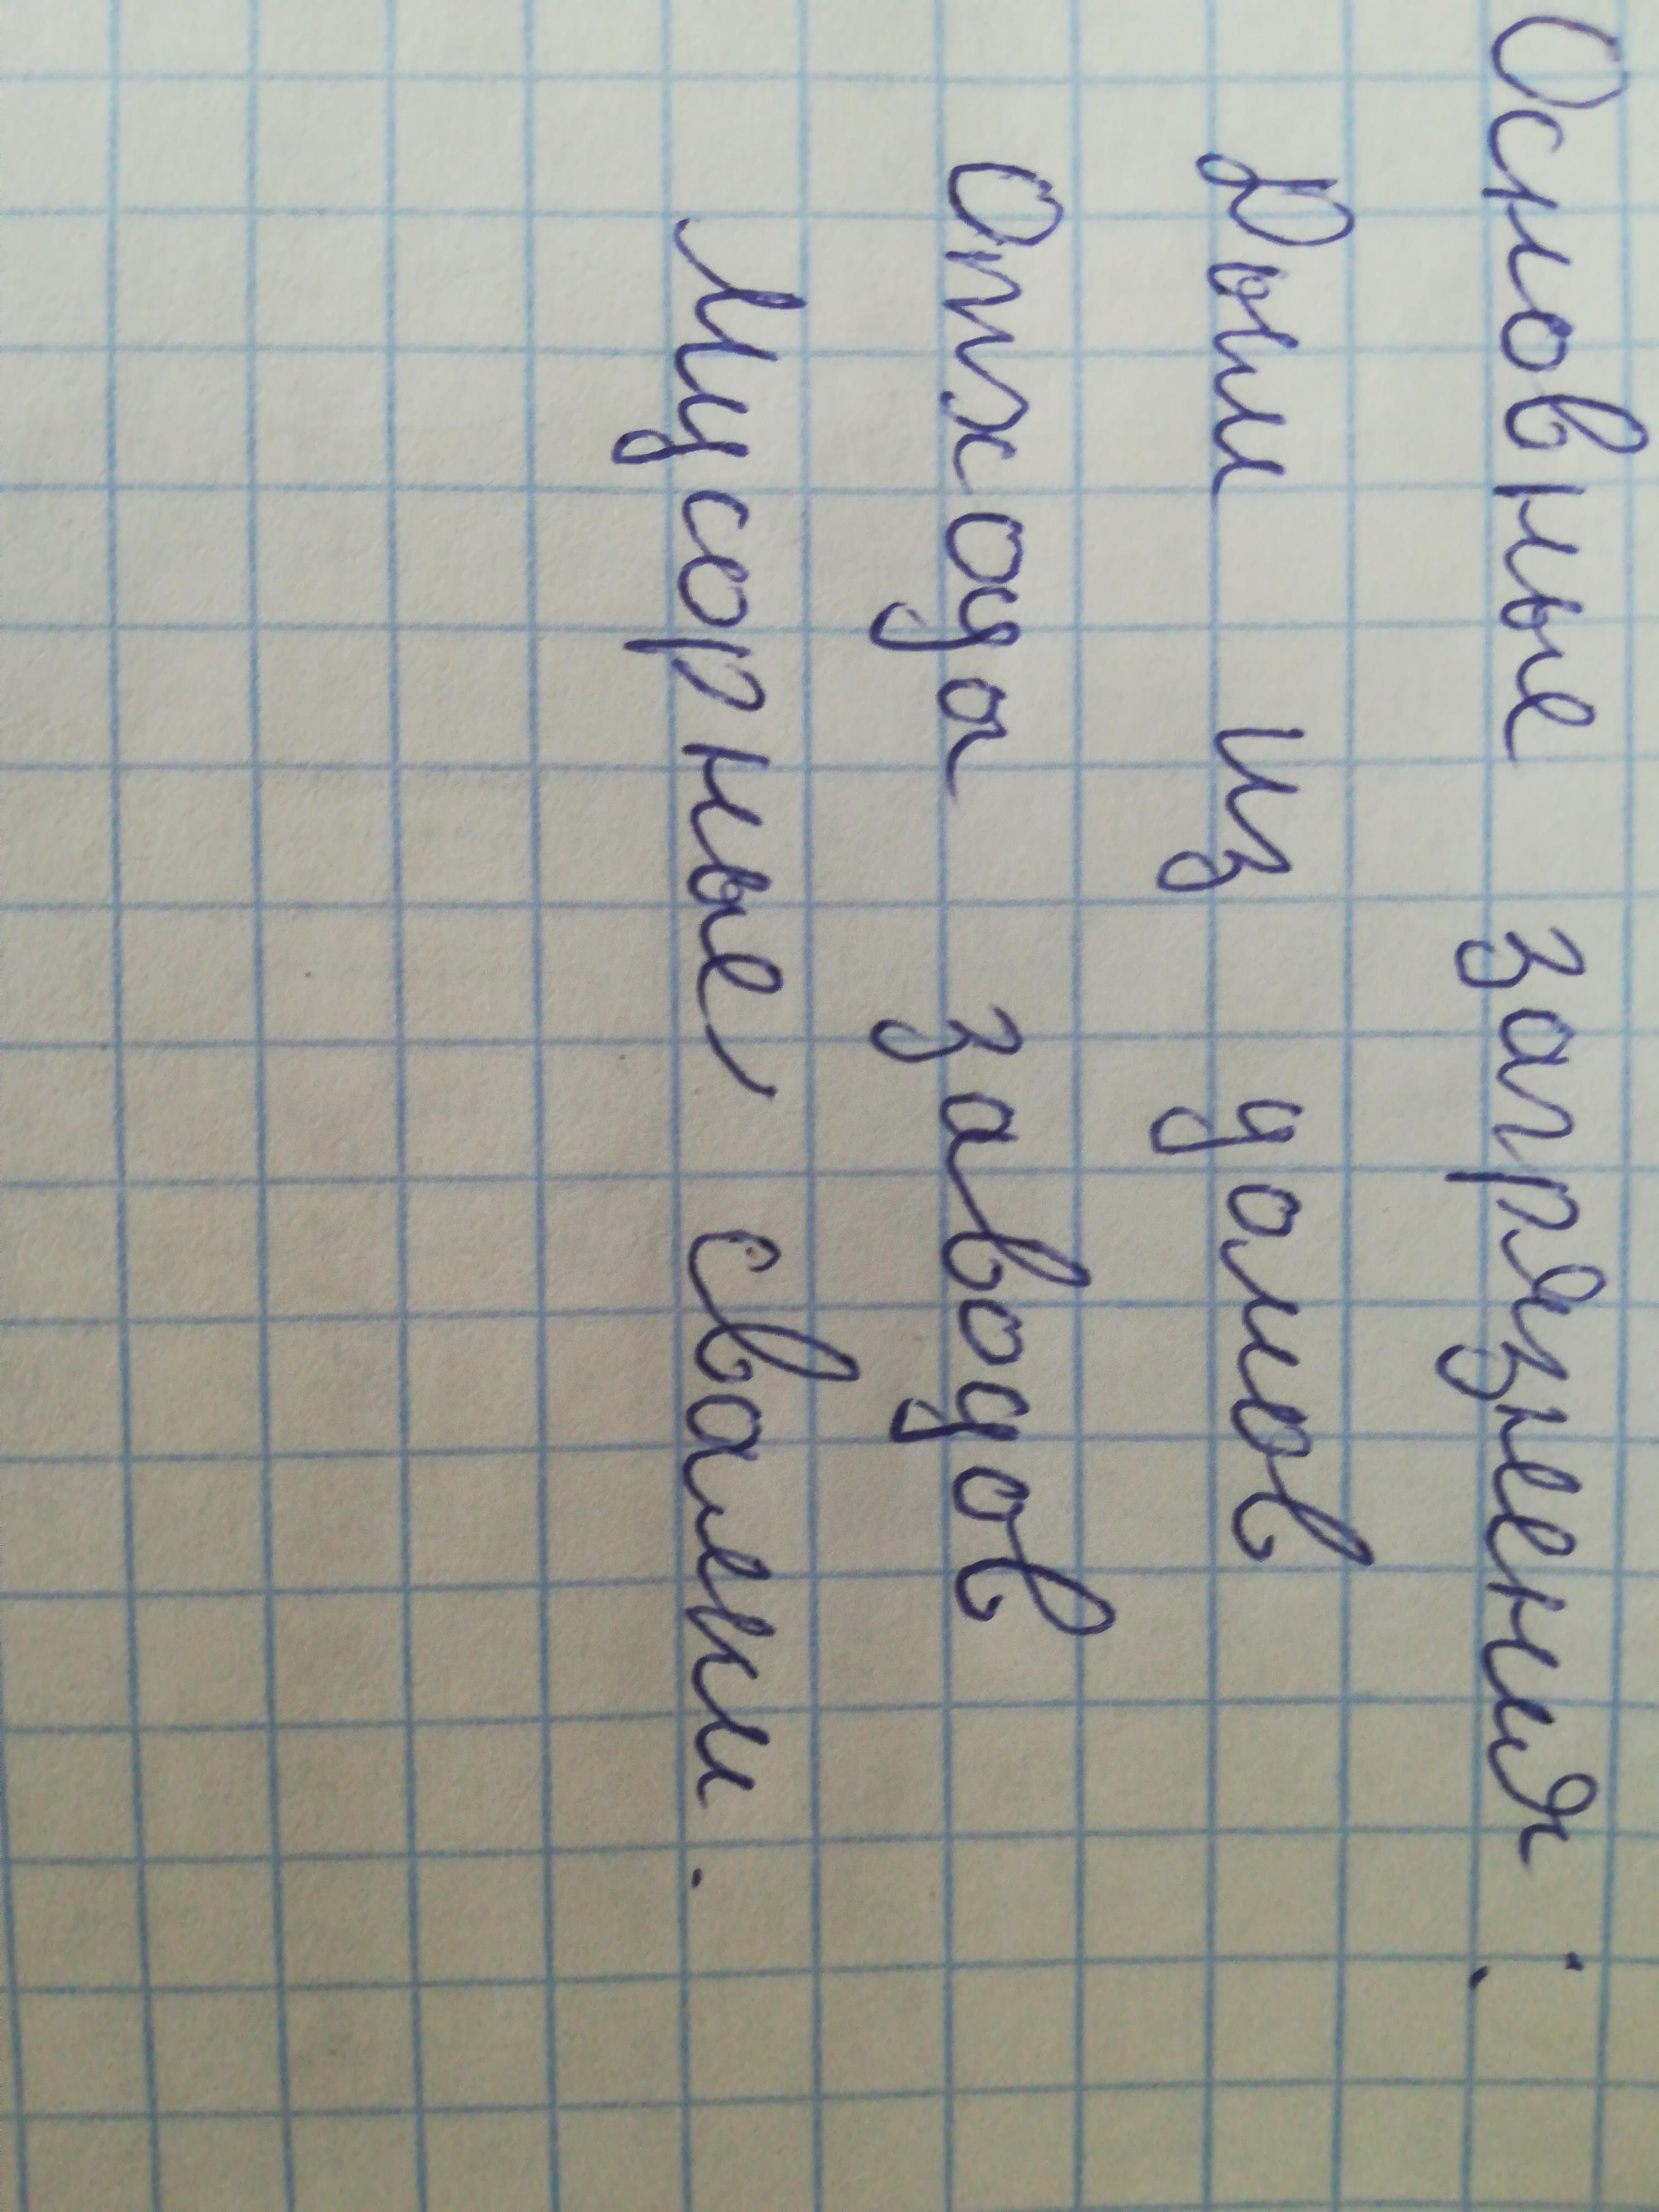 Основные загрязнения:
Дым из домов
Отхода заводов
Мусорные свалки.